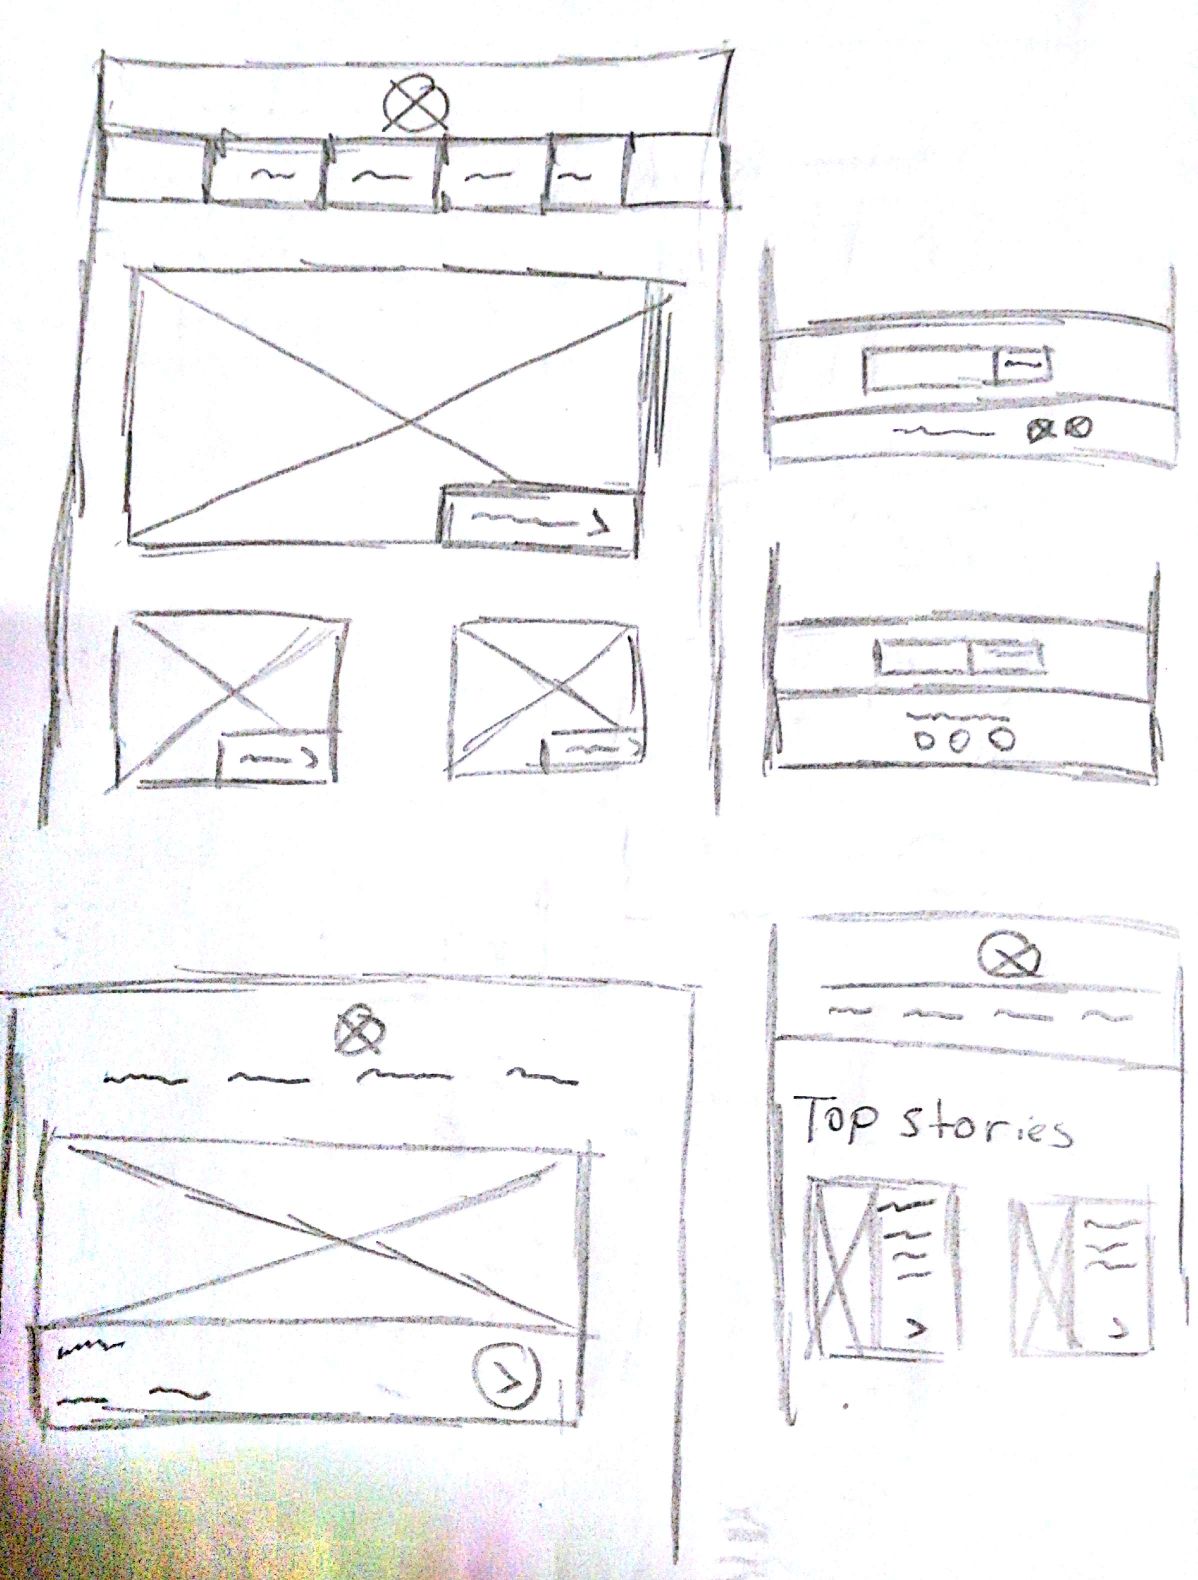 Top stories